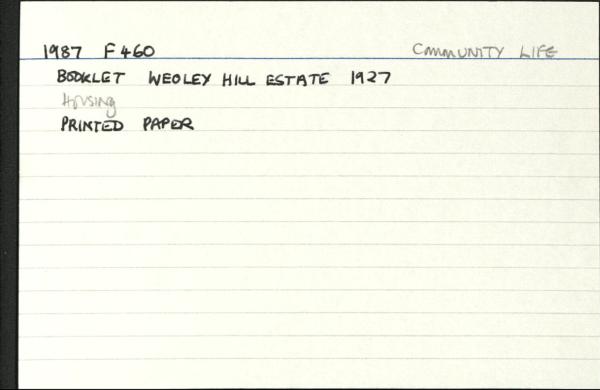 1987 F460 COMMUNITY LIFE
BOOKLET WEOLEY HILL ESTATE 1927
Housing
PRINTED PAPER